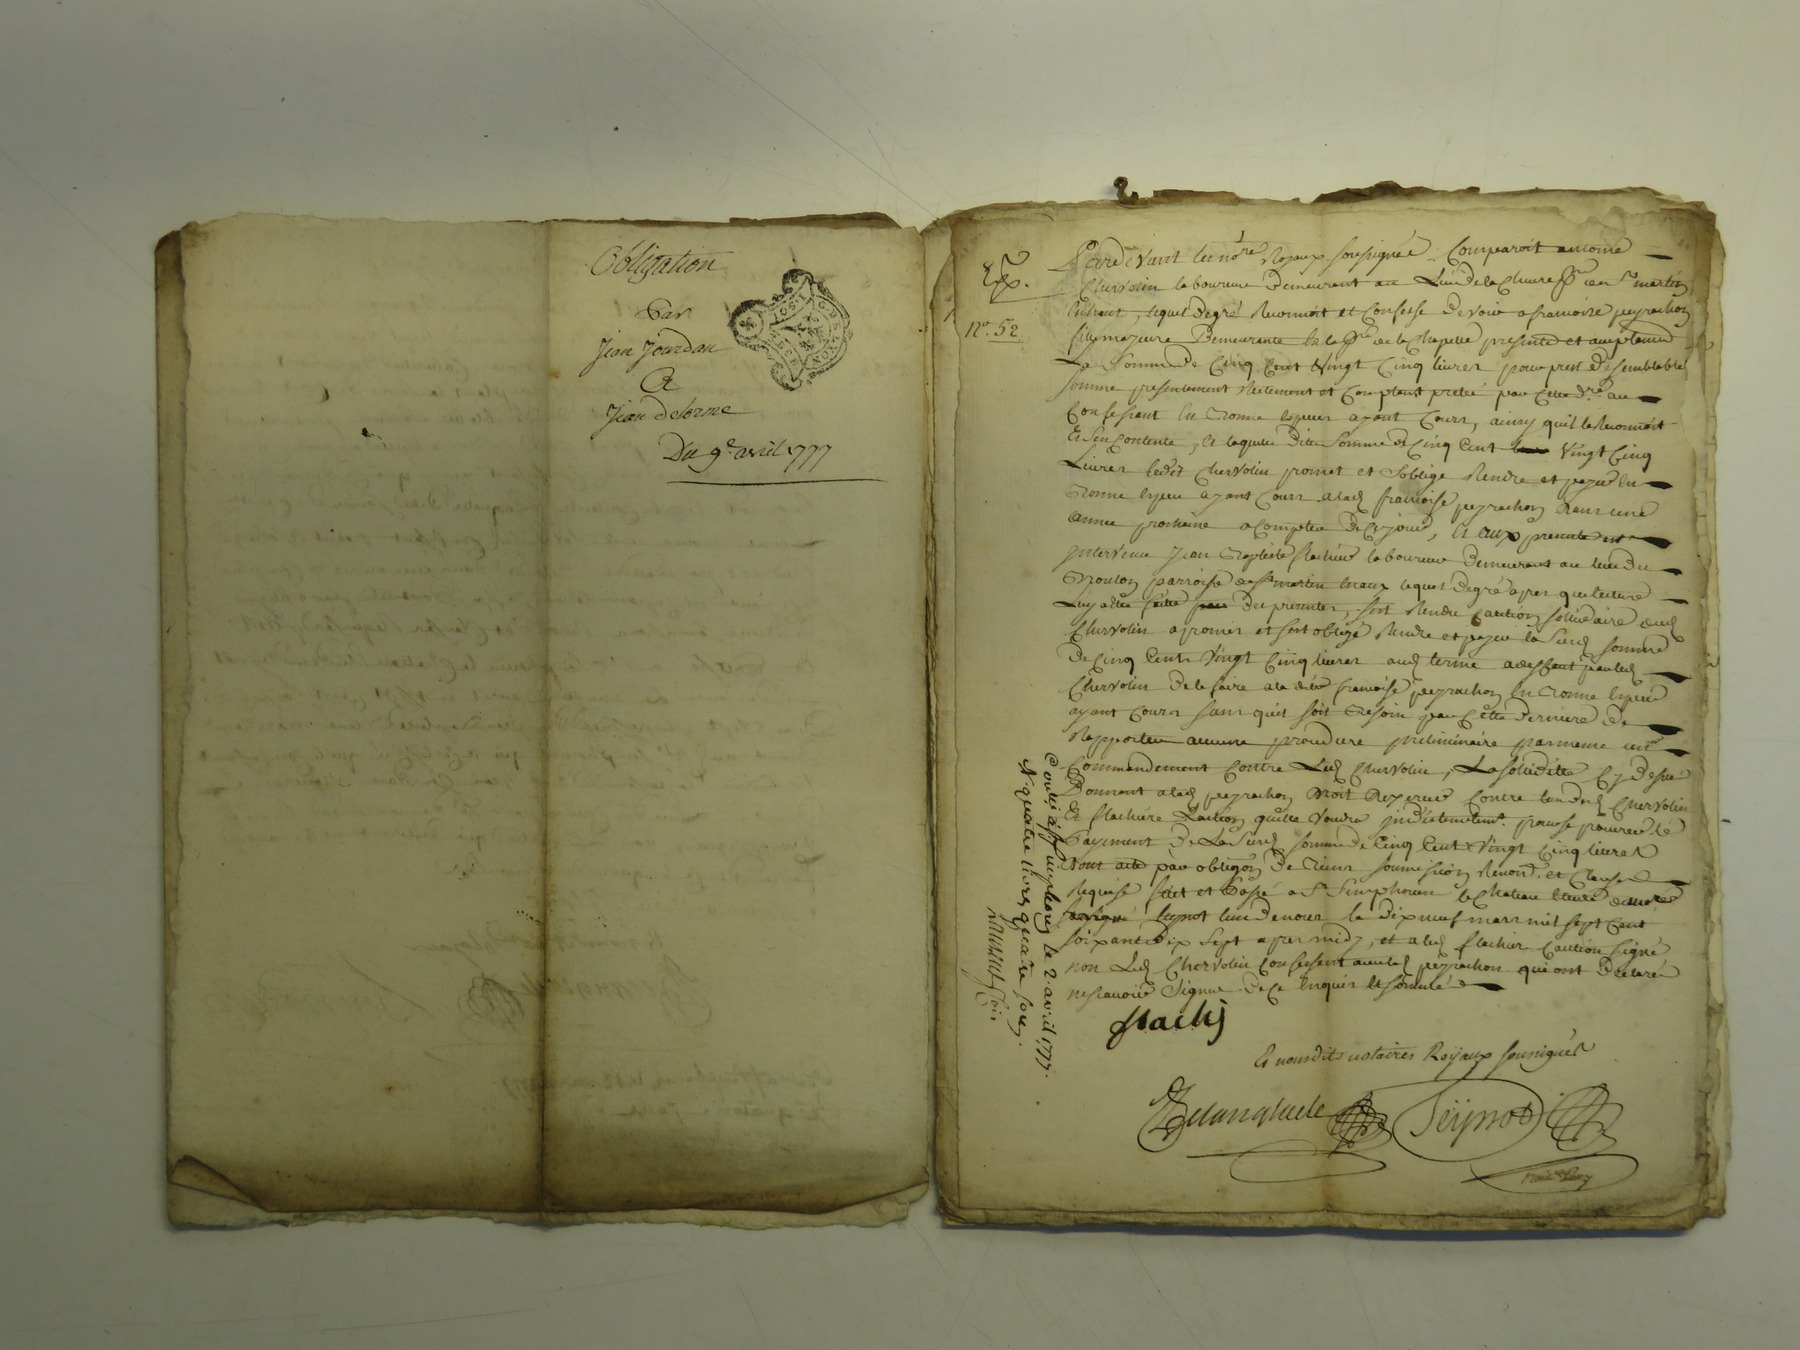 Obligation
Par
Jean Jourdan
A
Jean delorme
Du 9e avril 1777
Exp.
No. 52
Pardevant les nores Royaux soussignés Comparoit antoine
Chervolin laboureur Demeurant au Lieu de la Chure psse de St martin
lequel de gré Reconnoit et Confesse Devoir a francoise peyrachon
fille majeure Demeurante la psse de la Chapelle presente et acceptante
La Somme de Cinq Cent Vingt Cinq livres pour prest de semblable
somme presentement Reelement et Comptant preté par Cette dre au
Confessant En Bonne Especes ayant Cours, ainsy quil le Reconnoit
Et sen Contente, et laquelle dite Somme de Cinq Cent Vingt Cinq
Livres ledit Chervolin promet et soblige Rendre et payer En
Bonne Espece ayant Cours a lad francoise peyrachon Dans une
année prochaine a Compter de Ce jour, Et aux presente est
intervenu Jean Baptiste flachier laboureur Demeurant au lieu du
Mouton parroisse de St martin lequel de gré apres que lecture
Luy a été faitte des presentes, sest Rendu Caution sollidaire dud
Chervolin a promis et sest obligé Rendre et payer la Sud somme
de Cinq Cent Vingt Cinq livres aud terme a deffaut par led
Chervolin de le faire a la dite francoise peyrachon En Bonne Espece
ayant Cours sans quil soit Besoin par Cette Derniere de
Rapporter aucune procedure preliminaire par meme un
Commandement Contre Led Chervolin, La soliditée Cy dessus
Donnant a lad peyrachon Droit dexercer Contre lun dud Chervolin
Et flachier Laction quelle Voudra indistinctemt. pour se procurer le
Payment De La Sud somme de Cinq Cent Vingt Cinq livres
Dont acte par obligõn De Biens Soumission Renond. et Clauses
Requise fait et Passé a St Simphorien le Chateau Etude de
Seynot lun de nous le Dix neuf mars mil sept Cent
soixante Dix Sept apres midy, et a led flachier Caution signé
non Led Chervolin Confessant lad peyrachon qui ont Declaré
ne scavoir Signer De Ce Enquis Et sommé
flachi
Et nousdits notaires Royaux soussignés
Seÿnod
Conlé a St simphorien le 2 avril 1777.
R. quatre livres quatre sous.